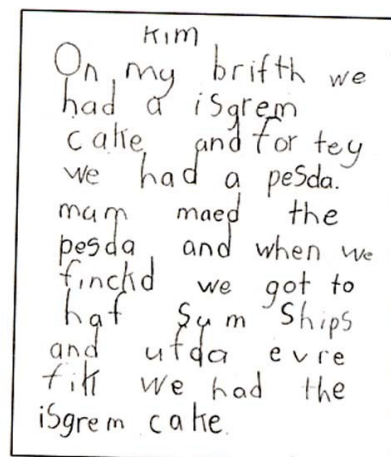 Kim
On my brifth we
had a isgrem
cake and for tey
we had a pesda.
mam maed the
pesda and when we
finckd we got to
haf sum Ships
and utda evre
fik we had the
isgrem cake.